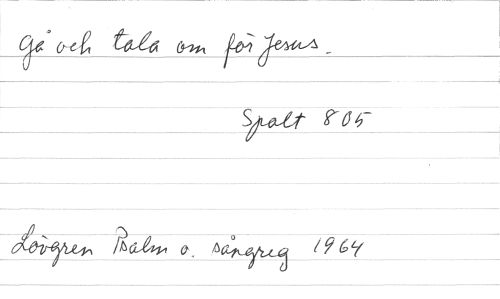 Gå och tala om för Jesus.
Spalt 805
Lövgren Psalm o. sångreg 1964